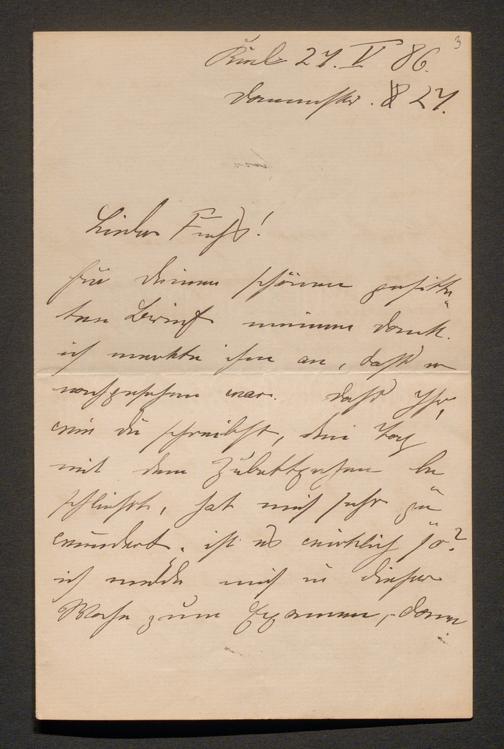 Kiel 27. V 86.
Dammstr. 27.
Lieber Fuchs!
für deinen schönen
ten Brief meinen dank.
ich merkte ihm an, daß er
nachgesehen war. daß Ihr,
wie du schreibst, den Tag
mit dem Zubettgehen be
schließt, hat mich sehr ge
wundert. ist es wirklich so?
ich melde mich in dieser
Woche zum Examen, dann
3